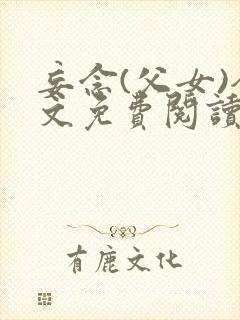 妄念(父女)
文免費閱讀
有鹿文化